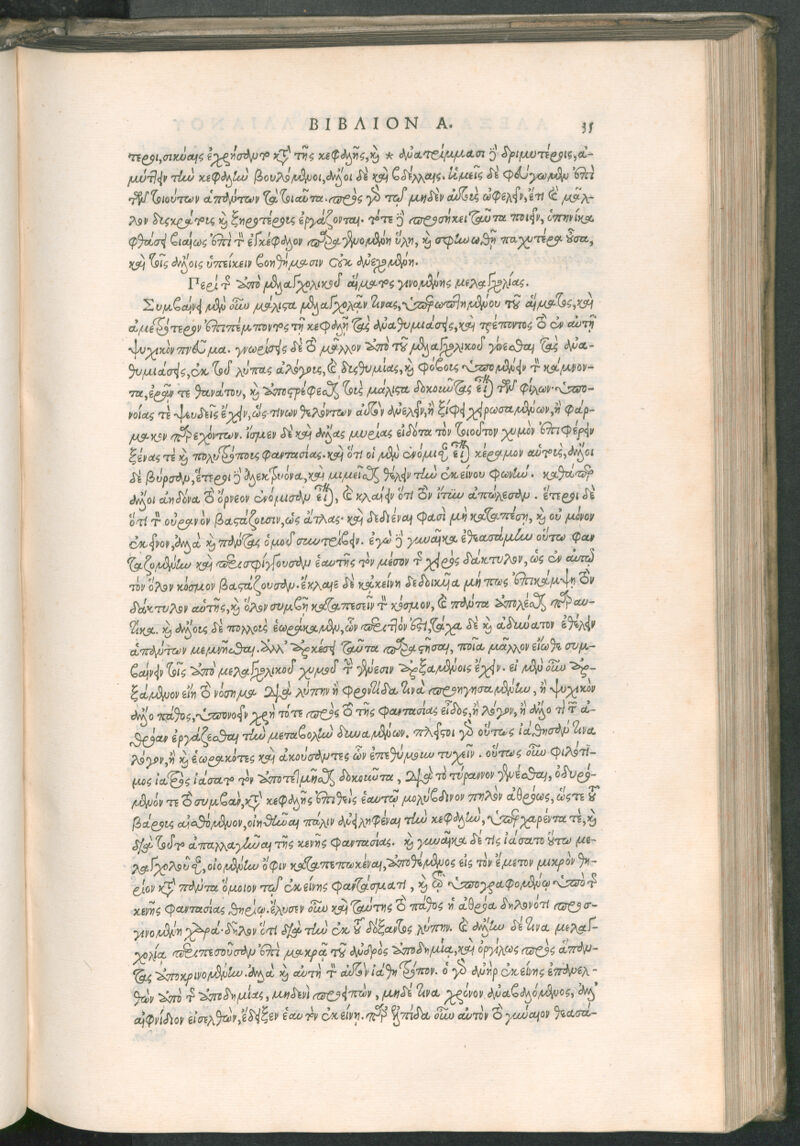 ΒΙΒΛΙΟΝ Α. 35
τεροι, σικύαις ἐχρήσαντο κατὰ τῆς κεφαλῆς, καὶ * ἀνατρίμμασι ἢ δριμυτέροις, ἀ-
μύττειν τὴν κεφαλὴν βουλόμενοι, ἄλλοι δὲ καὶ βδέλλαις. ἡμεῖς δὲ φεύγωμεν ἐπὶ
τῶν τοιούτων ἁπάντων τὰ τοιαῦτα. πρὸς γὰρ τῷ μηδὲν αὐτοὺς ὠφελεῖν, ἔτι καὶ μᾶλ-
λον δυσκράτους καὶ ξηροτέρους ἐργάζονται. τότε δὲ προσήκει ταῦτα ποιεῖν, ὁπηνίκα
φθάσῃ βιαίως ἐπὶ τὸν ἐγκέφαλον παραγενομένη ὕλη, καὶ σφηνωθῇ παχυτέρα οὖσα,
καὶ τοῖς ἄλλοις ὑπείκειν βοηθήμασιν οὐκ ἀνεχομένη.
Περὶ τῆς ἀπὸ μελαγχολικοῦ αἵματος γινομένης μελαγχολίας.
Συμβαίνει μὲν οὖν μάλιστα μελαγχολᾶν τινας, ὑπεροπτημένου τοῦ αἵματος, καὶ
δριμύτερον ἐπιπέμποντος τῇ κεφαλῇ τὰς ἀναθυμιάσεις, καὶ τρέποντος τὸ ἐν αὐτῇ
ψυχικὸν πνεῦμα. γνωρίσεις δὲ τὸ μᾶλλον ἀπὸ τοῦ μελαγχολικοῦ γίνεσθαι τὰς ἀνα-
θυμιάσεις, ἐκ τοῦ λύπας ἀλόγους, καὶ δυσθυμίας, καὶ φόβους ὑπομένειν τὸν κάμνον-
τα, ἐρᾶν τε θανάτου, καὶ ἀποστρέφεσθαι τοὺς μάλιστα δοκοῦντας εἶναι τῶν φίλων. ὑπο-
νοίας τε ψευδεῖς ἔχειν, ὥς τινων θελόντων αὐτὸν ἀνελεῖν, ἢ ξίφει χρωσαμένων, ἢ φάρ-
μακον παρεχόντων. ἴσμεν δὲ καὶ ἄλλας μυρίας εἰδότα τὸν τοιοῦτον χυμὸν ἐπιφέρειν
ξένας τε καὶ πολυτρόπους φαντασίας. καὶ ὅτι οἱ μὲν ἐνόμισαν εἶναι κέραμον αὑτοὺς, ἄλλοι
δὲ βύρσαν, ἕτεροι δὲ ἀλεκτρυόνα, καὶ μιμεῖσθαι θέλειν τὴν ἐκείνου φωνήν. καθάπερ
ἄλλοι ἀηδόνα τὸ ὄρνεον ἐνόμισαν εἶναι, καὶ κλαίειν ὅτι τὸν ἴτυν ἀπώλεσαν. ἕτεροι δὲ
ὅτι τὸν οὐρανὸν βαστάζουσιν, ὡς ἄτλας. καὶ δεδιέναι φασὶ μὴ καταπέσῃ, καὶ οὐ μόνον
ἐκεῖνον, ἀλλὰ καὶ πάντας ὁμοῦ συντρίβειν. ἐγὼ δὲ γυναῖκα ἐθεασάμην οὕτω φαν
ταζομένην καὶ περισφίγγουσαν ἑαυτῆς τὸν μέσον τῆς χειρὸς δάκτυλον, ὡς ἐν αὐτῷ
τὸν ὅλον κόσμον βαστάζουσαν. ἔκλαιε δὲ κἀκείνη δεδοικυῖα μή πως ἐπικάμψῃ τὸν
δάκτυλον αὑτῆς, καὶ ὅλον συμβῇ καταπεσεῖν τὸν κόσμον, καὶ πάντα ἀπολέσθαι παραυ-
τίκα. καὶ ἄλλους δὲ πολλοὺς ἑωράκαμεν, ὧν περιττόν ἐστι, τάχα δὲ καὶ ἀδύνατον ἐθέλειν
ἁπάντων μεμνῆσθαι. ἀλλ' ἀρκέσει ταῦτα παραστῆσαι, ποῖα μᾶλλον εἴωθε συμ-
βαίνειν τοῖς ἀπὸ μελαγχολικοῦ χυμοῦ τὴν γένεσιν ἀρξαμένοις ἔχειν. εἰ μὲν οὖν ἀρ-
ξάμενον εἴη τὸ νόσημα διὰ λύπην ἢ φροντίδα τινὰ προηγησαμένην, ἢ ψυχικὸν
ἄλλο πάθος, ὑπονοεῖν χρὴ τότε πρὸς τὸ τῆς φαντασίας εἶδος, ἢ λόγον, ἢ ἄλλο τι τῶν ἀ-
θρόαν ἐργάζεσθαι τὴν μεταβολὴν δυναμένων. πλεῖστοι γὰρ οὕτως ἰάθησαν τινα
λόγον, ἢ καὶ ἑωρακότες καὶ ἀκούσαντες ὧν ἐπεθύμουν τυχεῖν. οὕτως οὖν φιλότι-
μος ἰατρὸς ἰάσατο τὸν ἀποτετμῆσθαι δοκοῦντα, διὰ τὸ τύραννον γενέσθαι, ὀδυρό-
μενόν τε τὸ συμβὰν, κατὰ κεφαλῆς ἐπιθεὶς ἑαυτῷ μολύβδινον πηλὸν ἀθρόως, ὥστε τοῦ
βάρους αἰσθόμενον, οἰηθῆναι πάλιν ἀνειληφέναι τὴν κεφαλὴν, ὑπερχαρέντα τὲ, καὶ
διὰ τοῦτο ἀπαλλαγῆναι τῆς κενῆς φαντασίας. καὶ γυναῖκα δέ τις ἰάσατο οὕτω με-
λαγχολοῦσαν, οἰομένην ὄφιν καταπεπωκέναι, ἀποθέμενος εἰς τὸν ἔμετον μικρὸν θη-
ρίον κατὰ πάντα ὅμοιον τῷ ἐκείνης φαντάσματι, καὶ τῷ ὑπογραφομένῳ ὑπὸ τῆς
κενῆς φαντασίας θηρίῳ. ἔλυσεν οὖν καὶ ταύτης τὸ πάθος ἡ ἀθρόα δηλονότι προσ-
γινομένη χαρά. δῆλον ὅτι διὰ τὴν ἐκ τοῦ δόξαντος λύπην. καὶ ἄλλην δέ τινα μελαγ-
χολίᾳ περιπεσοῦσαν ἐπὶ μακρᾷ τοῦ ἀνδρὸς ἀποδημίᾳ, καὶ ὀργίλως πρὸς ἅπαν-
τας ἀποκρινομένην. ἀλλὰ καὶ αὐτὴ τὸν αὐτὸν ἰάθη τρόπον. ὁ γὰρ ἀνὴρ ἐκείνης ἐπανελ-
θὼν ἀπὸ τῆς ἀποδημίας, μηδενὶ προσειπὼν, μηδέ τινα χρόνον ἀναβαλόμενος, ἀλλ'
αἰφνίδιον εἰσελθὼν, ἔδειξεν ἑαυτὸν ἐκείνῃ. παρ' ἐλπίδα οὖν αὐτὸν τὸ γύναιον θεασά-